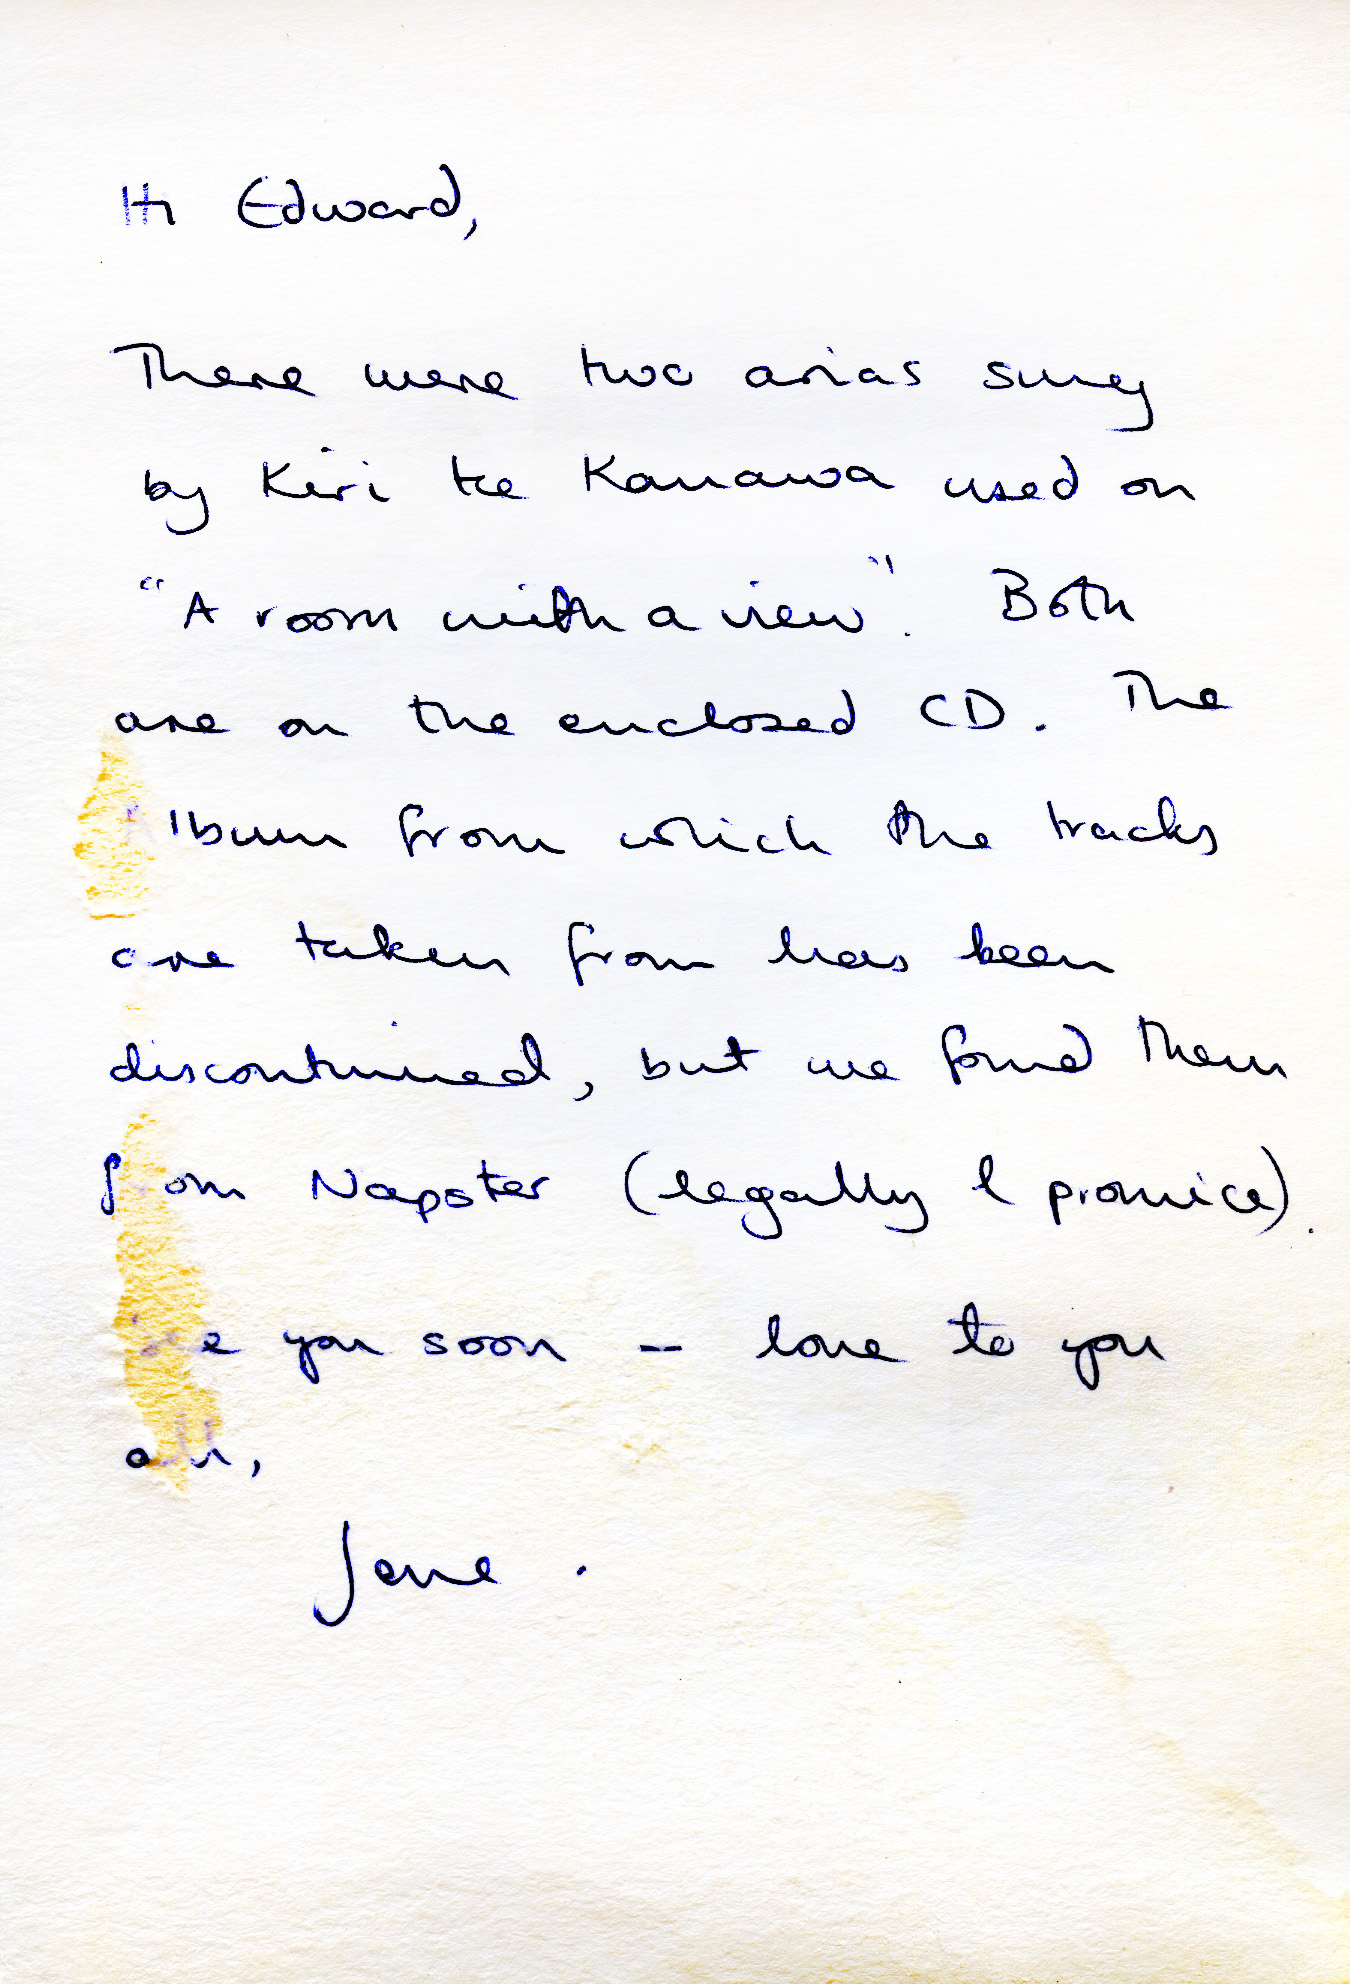 Hi Edward,
There were two arias sung
by Kiri te Kanawa used on
"A room with a view". Both
are on the enclosed CD. The
Album from which the tracks
are taken from has been
discontinued, but we found them
from Napster (legally I promice).
See you soon -- love to you
all,
Jane.